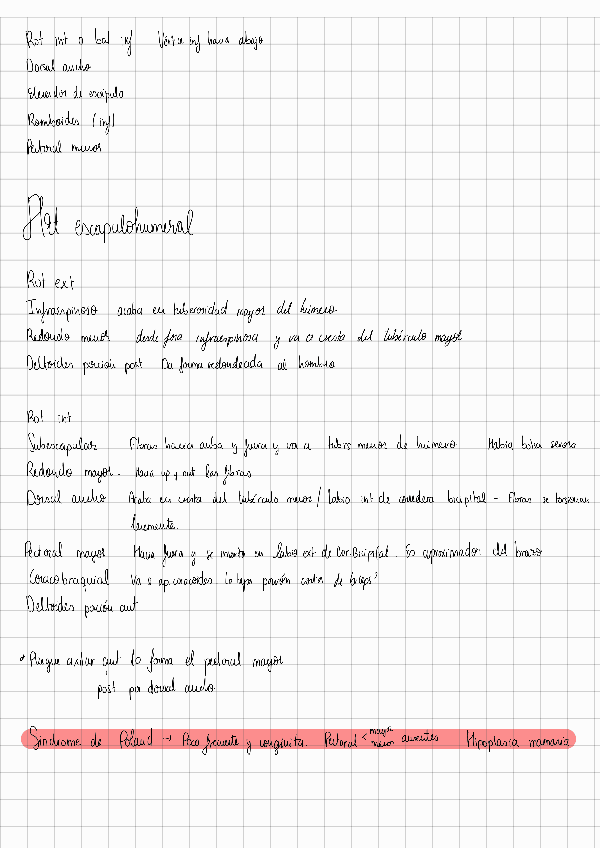 Rot int o bal inf Vértice inf hacia abajo
Dorsal ancho
Elevador de escápula
Romboides (inf)
Pectoral menor
Art escapulohumeral
Rot ext
Infraespinoso acaba en tuberosidad mayor del húmero.
Redondo menor desde fosa infraespinosa y va a cresta del tubérculo mayor
Deltoides porción post Da forma redondeada al hombro
Rot int
Subescapular Fibras hacia arriba y fuera y va a tubérc menor de húmero Habia bolsa serosa
Redondo mayor. Hacia up y out las fibras
Dorsal ancho Acaba en cresta del tubérculo menor / labio int de corredera bicipital - Fibras se torsionan
levemente.
Pectoral mayor Hacia fuera y se inserta en labio ext de Cor. Bicipital. Es aproximador del brazo
Coracobraquial Va a ap. coracoides porción corta de biceps
Deltoides porción ant
* Pliegue axilar ant lo forma el pectoral mayor
post por dorsal ancho.
Síndrome de Poland → Poco frecuente y congénita. Pectoral < mayor menor ausentes Hipoplasia mamaria